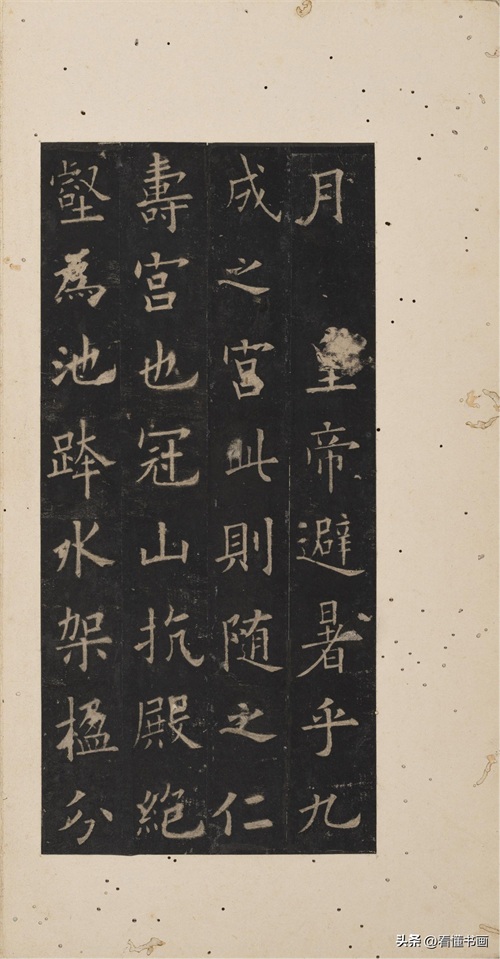 月 皇帝避暑乎九
成之宮此則随之仁
壽宮也冠山抗殿絕
壑為池跨水架楹分
头条 @看懂书画